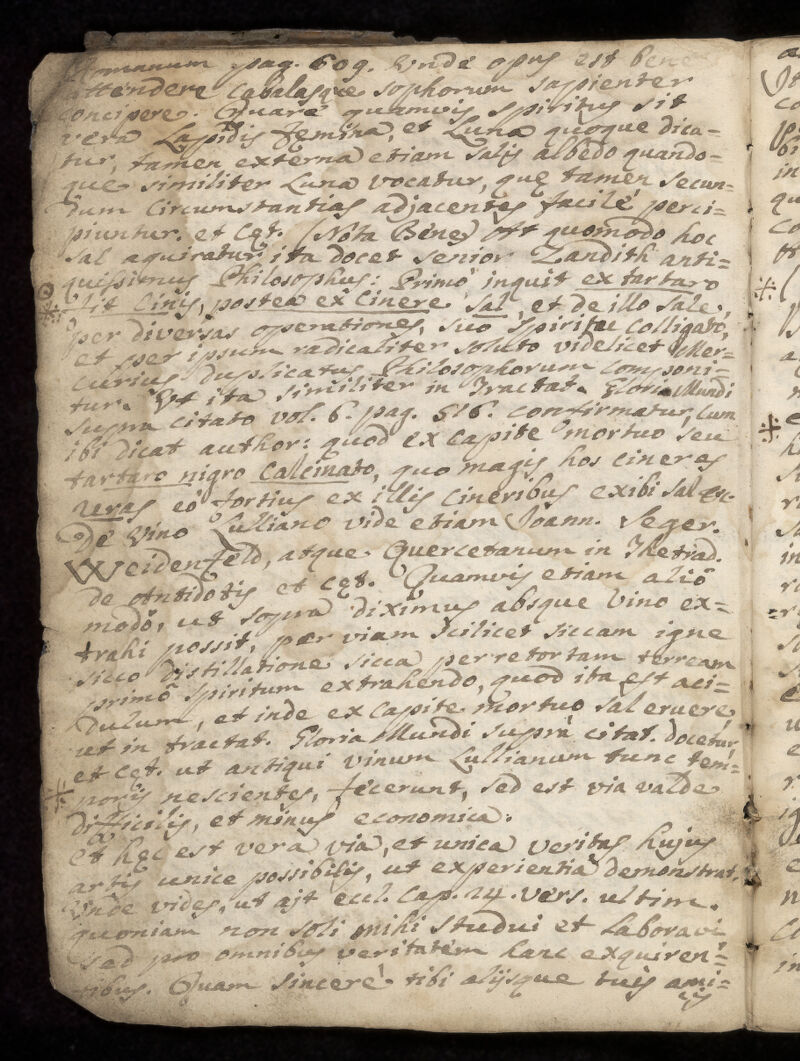 Romanum pag. 609. Unde opus est bene
attendere Cabalasque sophorum sapienter
concipere. Quare quamvis spiritus sit
vera Lapidis femina, et Luna quoque dica=
tur, tamen externa etiam salis albedo quando=
que similiter Luna vocatur, quę tamen secun=
dum Circumstantias adjacentes facilé perci=
piuntur. et Cęt. (Nota Bene) Ott quomodo hoc
sal aquiratur ita docet senior Zandith anti=
quissimus Philosophus: Primó inquit ex tartaro
fit Cinis, postea ex Cinere sal, et de illo sale,
per diversas operationes, suo spiritu colligato,
et per ipsum radicaliter soluto videlicet Mer=
curius duplicatus Philosophorum componi=
tur. Ut ita similiter in Tractat. Gloria Mundi
supra citato vol. 6. pag. 516. confirmatur, Cum
ibi dicat author: quod ex capite mortuo seu
tartaro nigro Calcinato, quo magis hos cineres
ureras eo fortius ex illis cineribus exibi sal etc.
De Vino Lulliano vide etiam Joann. Seger.
Weidenfeld, atque Quercetanum in Thetrad.
de Antidotis et Cęt. Quamvis etiam alio
modo, ut sopra diximus absque vino ex=
trahi possit, per viam scilicet siccam igne
sicco distillatione sicca per retortam terream
primó spiritum extrahendo, quod ita est aci=
dulum, et inde ex Capite mortuo sal eruere,
ut in tractat. Gloria Mundi suprà citat. docetur,
et Cęt. ut antiqui vinum Lullianum tunc tem=
poris nescientes, fecerunt, sed est via valde
difficilis, et minus economica.
Et hęc est vera via, et unica veritas hujus
artis unice possibilis, ut experientia demonstrat.
Unde vides, ut ajt eccl. Cap. 24. vers. ultim.
quoniam non soli mihi studui et Laboravi
sed pro omnibus veritatem hanc exquiren=
tibus. Quam sinceré tibi alijsque tuis ami=
cis